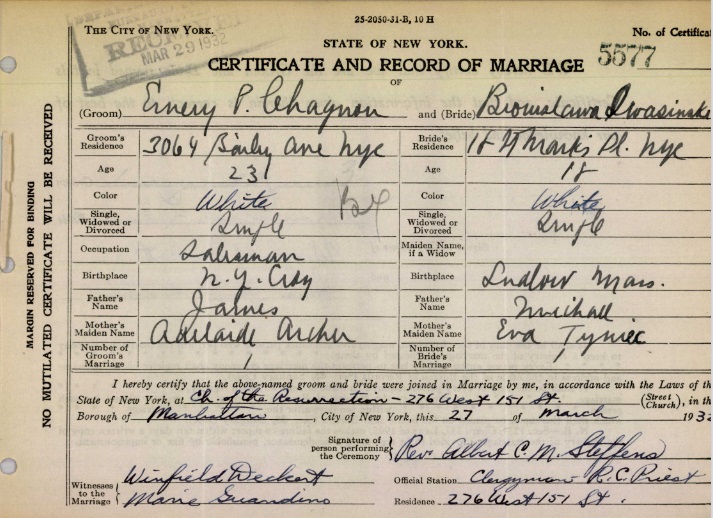 25-2050-31-B, 10 H
THE CITY OF NEW YORK.
No. of Certifica
STATE OF NEW YORK.
5577
RECEIVED
MAR 29 1932
CERTIFICATE AND RECORD OF MARRIAGE
OF
(Groom) Emery P. Chagnon and (Bride) Bronislawa Iwasinska
Groom's Residence 3064 Bailey Ave Nyc Bride's Residence 18 St Marks Pl. Nyc
Age 23 Age 18
Color White Bx Color White
Single, Widowed or Divorced Single Single, Widowed or Divorced Single
Occupation Salesman Maiden Name, if a Widow
Birthplace N. Y. City Birthplace Ludlow Mass.
Father's Name James Father's Name Michall
Mother's Maiden Name Adelaide Archer Mother's Maiden Name Eva Tyniec
Number of Groom's Marriage 1 Number of Bride's Marriage 1
I hereby certify that the above-named groom and bride were joined in Marriage by me, in accordance with the Laws of th
State of New York, at Ch. of the Resurrection - 276 West 151 St. (Street Church), in th
Borough of Manhattan, City of New York, this 27 of March 193
Signature of person performing the Ceremony Rev. Albert C. M. Steffens
Witnesses to the Marriage Winfield Deckert Official Station Clergyman R. C. Priest
Marie Guandino Residence 276 West 151 St.
MARGIN RESERVED FOR BINDING
NO MUTILATED CERTIFICATE WILL BE RECEIVED